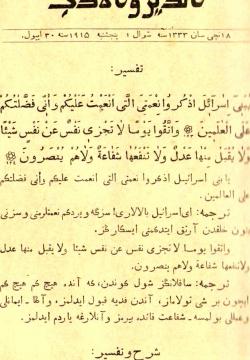 ١٨ نجى سان ١٣٣٣ سنه ١ شوال پنجشنبه ١٩١٥ سنه ٣٠ ايول.
تفسير:
يٰبَنِى اِسْرَائِلَ اذْكُرُوا نِعْمَتِىَ الَّتِى اَنْعَمْتُ عَلَيْكُمْ وَاَنِّى فَضَّلْتُكُمْ
عَلَى الْعَالَمِينَ ۞ وَاتَّقُوا يَوْمًا لَا تَجْزِى نَفْسٌ عَنْ نَفْسٍ شَيْئًا
وَلَا يُقْبَلُ مِنْهَا عَدْلٌ وَلَا تَنْفَعُهَا شَفَاعَةٌ وَلَا هُمْ يُنْصَرُونَ ۞
يا بنى اسرائيل اذكروا نعمتى التى انعمت عليكم وأنى فضلتكم
على العالمين.
ترجمه: اى اسرائيل بالالارى! سزگه ويردكم نعمتلرمنى وسزنى
بتون خلقدن آرتق ايتدكمنى ايسكارڭز.
واتقوا يوما لا تجزى نفس عن نفس شيئا ولا يقبل منها عدل
ولاتنفعها شفاعة ولا هم ينصرون.
ترجمه: ساقلانڭز شول كوندن، كه آنده هيچ كم هيچ كم
ايچون بر شى تولاماز، آندن فديه قبول ايدلمز، وآڭا - ايمانلى
وعملى بولمسه - شفاعت فائده بيرمز وآنلارغه ياردم ايدلمز.
شرح وتفسير: